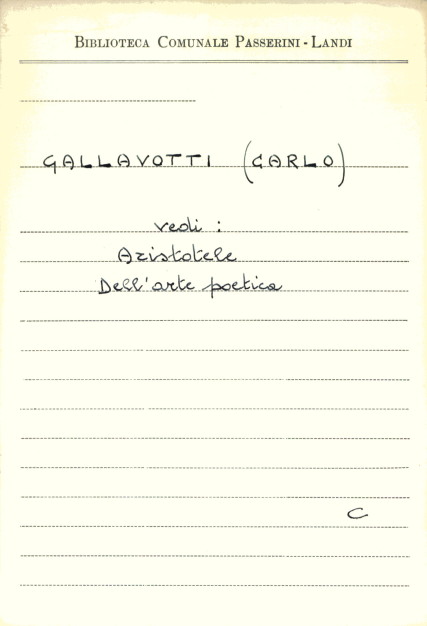 BIBLIOTECA COMUNALE PASSERINI - LANDI
GALLAVOTTI (CARLO)
vedi :
Aristotele
Dell'arte poetica
C